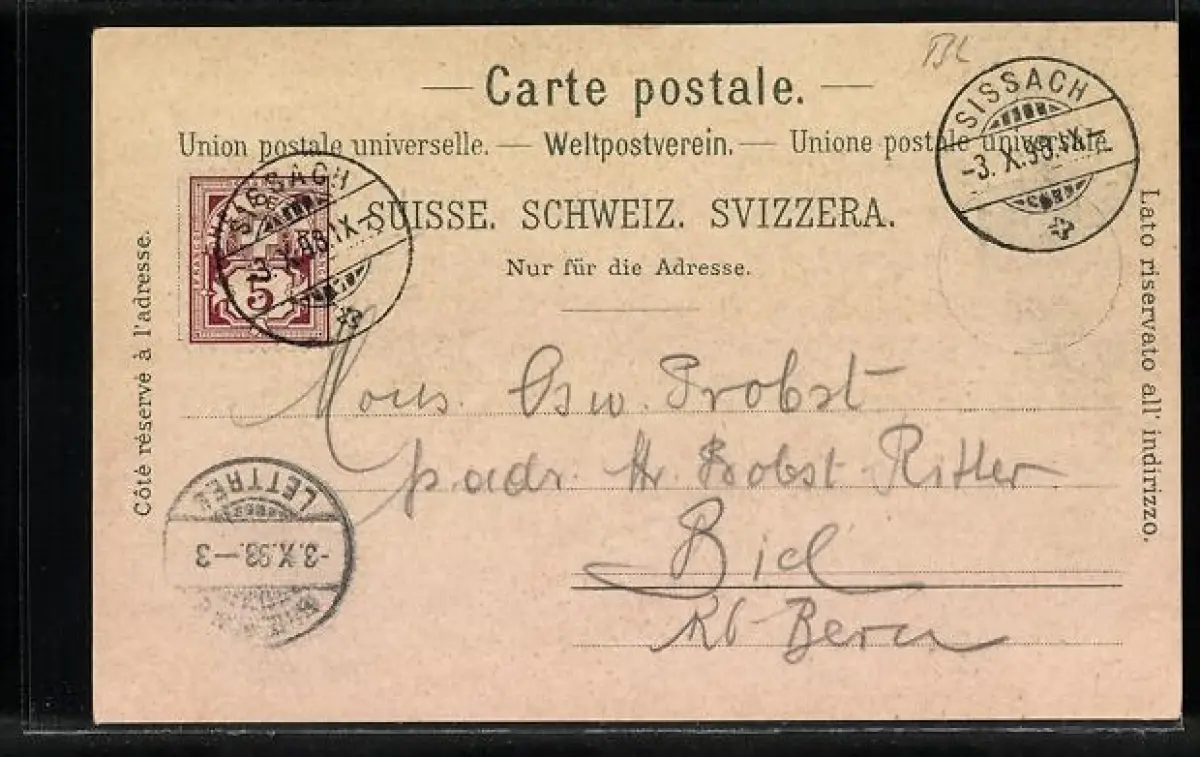 BL
— Carte postale. —
Union postale universelle. — Weltpostverein. — Unione postale universale.
SUISSE. SCHWEIZ. SVIZZERA.
Nur für die Adresse.
Côté réservé à l'adresse.
Lato riservato all' indirizzo.
SISSACH
-3. X. 98. IX-
SISSACH
-3. X. 98. IX-
5
Mons. Osw. Probst
p. adr. Hr. Bobst-Ritter
Biel
Kt Bern
LETTRES
-3. X. 98. — 3